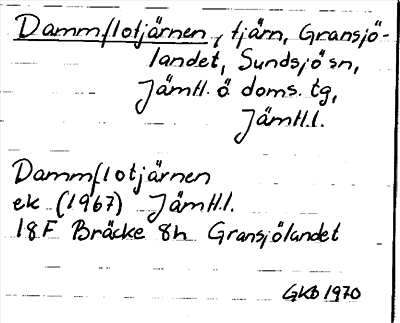 Dammflotjärnen, tjärn, Gransjö-
landet, Sundsjö sn,
Jämtl. ö doms. tg,
Jämtl.l.
Dammflotjärnen
ek (1967) Jämtl.l.
18F Bräcke 8h Gransjölandet
GKB 1970